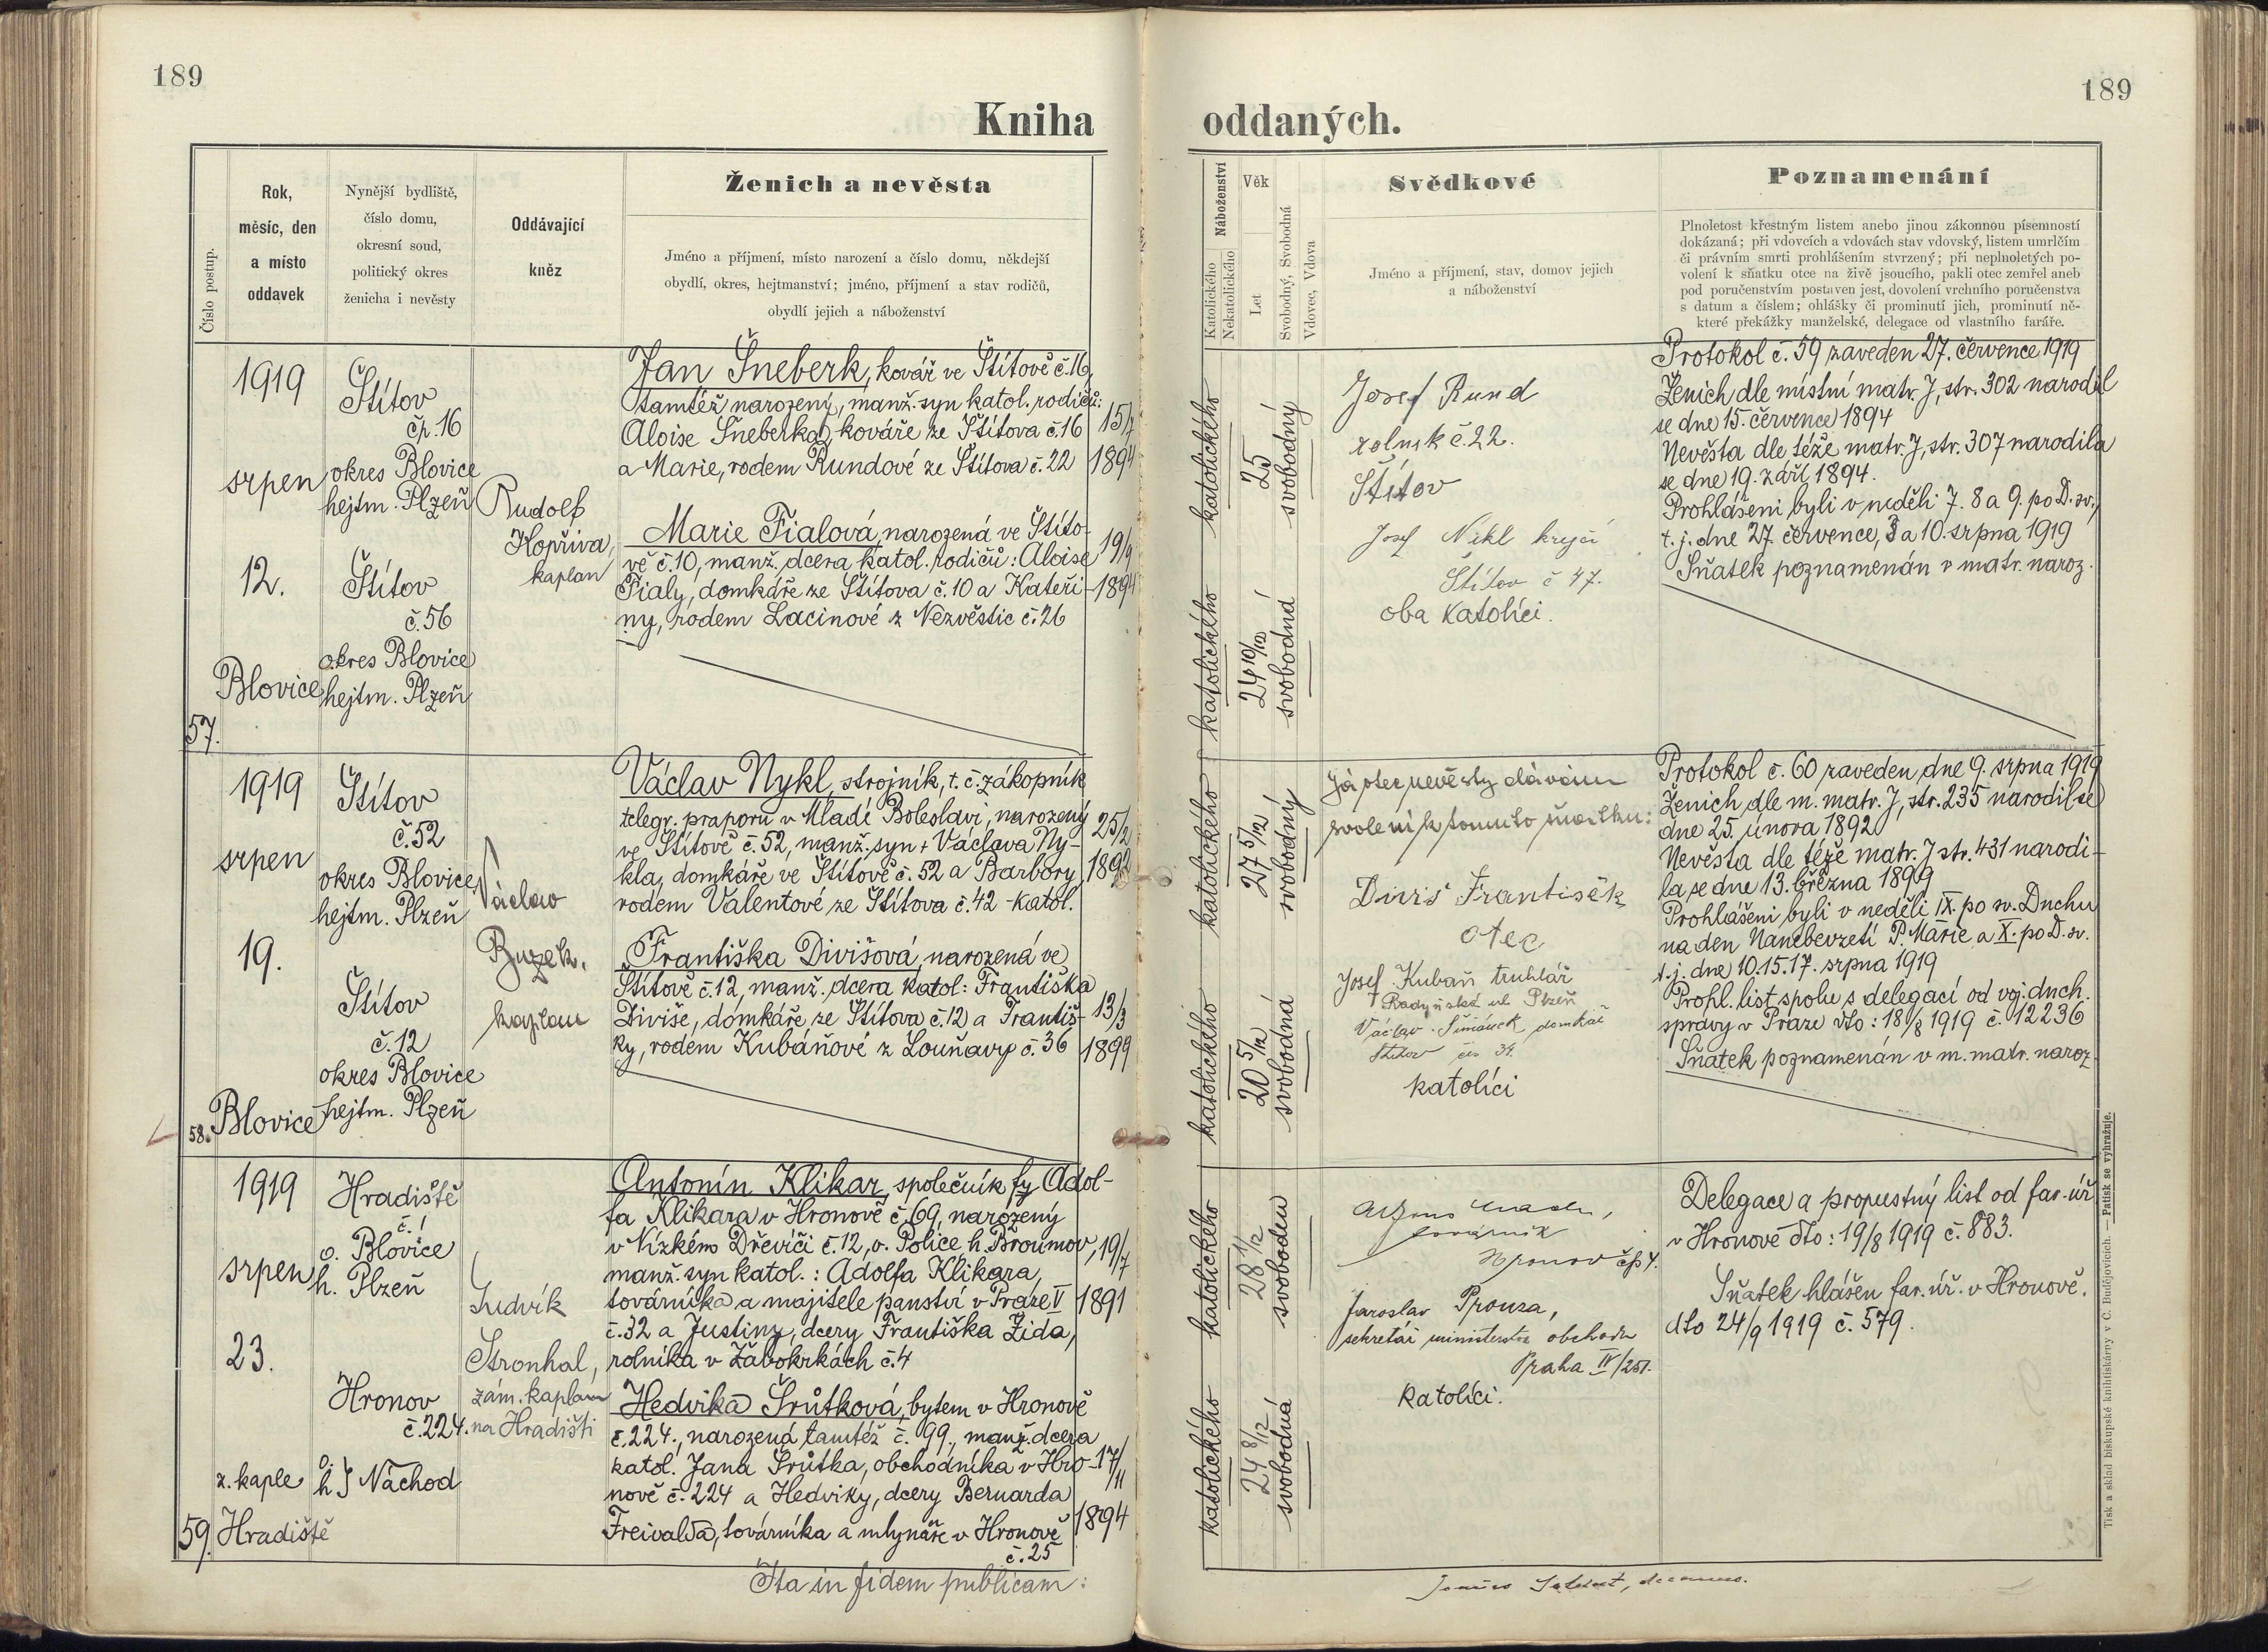 189
Kniha
Číslo postup.
Rok,
měsíc, den
a místo
oddavek
Nynější bydliště,
číslo domu,
okresní soud,
politický okres
ženicha i nevěsty
Oddávající
kněz
Ženich a nevěsta
Jméno a příjmení, místo narození a číslo domu, někdejší
obydlí, okres, hejtmanství; jméno, příjmení a stav rodičů,
obydlí jejich a náboženství
1919
srpen
12.
Blovice
57.
Štítov
čp. 16
okres Blovice
hejtm. Plzeň
Štítov
č. 56
okres Blovice
hejtm. Plzeň
Rudolf
Kopřiva,
kaplan
Jan Šneberk, kovář ve Štítově č. 16,
tamtéž narozený, manž. syn katol. rodičů:
Aloise Šneberka, kováře ze Štítova č. 16
a Marie, rodem Rundové ze Štítova č. 22
15/7
1894
Marie Fialová, narozená ve Štíto-
vě č. 10, manž. dcera katol. rodičů: Aloise
Fialy, domkáře ze Štítova č. 10 a Kateři-
ny, rodem Lacinové z Nezvěstic č. 26
19/9
1894
1919
srpen
19.
Blovice
58.
Štítov
č. 52
okres Blovice
hejtm. Plzeň
Štítov
č. 12
okres Blovice
hejtm. Plzeň
Václav
Buzek,
kaplan
Václav Nykl, strojník, t. č. zákopník
telegr. praporu v Mladé Boleslavi, narozený
ve Štítově č. 52, manž. syn + Václava Ny-
kla, domkáře ve Štítově č. 52 a Barbory,
rodem Valentové ze Štítova č. 42 - katol.
25/2
1892
Františka Divišová, narozená ve
Štítově č. 12, manž. dcera katol: Františka
Diviše, domkáře ze Štítova č. 12 a Františ-
ky, rodem Kubáňové z Louňavy č. 36
13/3
1899
1919
srpen
23.
z. kaple
59. Hradiště
Hradiště
č. 1
o. Blovice
h. Plzeň
Hronov
č. 224.
o.
h. } Náchod
Ludvík
Stronhal,
zám. kaplan
na Hradišti
Antonín Klikar, společník fy Adol-
fa Klikara v Hronově č. 69, narozený
v Nízkém Dřevíči č. 12, o. Police, h. Broumov,
manž. syn katol.: Adolfa Klikara,
továrníka a majitele panství v Praze V
č. 32 a Justiny, dcery Františka Žida,
rolníka v Žabokrkách č. 4
19/7
1891
Hedvika Šrůtková, bytem v Hronově
č. 224., narozená tamtéž č. 99., manž. dcera
katol. Jana Šrůtka, obchodníka v Hro-
nově č. 224 a Hedviky, dcery Bernarda
Freivalda, továrníka a mlynáře v Hronově
č. 25
17/11
1894
Ita in fidem publicam:
189
oddaných.
Náboženství
Katolického
Nekatolického
Věk
Let
Svobodný, Svobodná
Vdovec, Vdova
Svědkové
Jméno a příjmení, stav, domov jejich
a náboženství
Poznamenání
Plnoletost křestným listem anebo jinou zákonnou písemností
dokázaná; při vdovcích a vdovách stav vdovský, listem umrlčím
či právním smrti prohlášením stvrzený; při neplnoletých po-
volení k sňatku otce na živě jsoucího, pakli otec zemřel aneb
pod poručenstvím postaven jest, dovolení vrchního poručenstva
s datum a číslem; ohlášky či prominutí jich, prominutí ně-
které překážky manželské, delegace od vlastního faráře.
katolického
25
svobodný
katolického
24 10/12
svobodná
Josef Rund
rolník č. 22.
Štítov
Josef Nikl krejčí
Štítov č 47.
oba katolíci.
Protokol č. 59 zaveden 27. července 1919
Ženich dle místní matr. J, str. 302 narodil
se dne 15. července 1894
Nevěsta dle téže matr. J, str. 307 narodila
se dne 19. září 1894.
Prohlášeni byli v neděli 7. 8 a 9. po D. sv.,
t. j. dne 27. července, 3 a 10. srpna 1919
Sňatek poznamenán v matr. naroz.
katolického
27 5/12
svobodný
katolického
20 5/12
svobodná
Já otec nevěsty dávám
svolení k tomuto sňatku:
Diviš František
otec
Josef Kubaň truhlář
Radyňská ul. Plzeň
Václav Šimánek domkář
Štítov čís 39.
katolíci
Protokol č. 60 zaveden dne 9. srpna 1919
Ženich dle m. matr. J, str. 235 narodil se
dne 25. února 1892
Nevěsta dle téže matr. J str. 431 narodi-
la se dne 13. března 1899
Prohlášeni byli v neděli IX. po sv. Duchu
na den Nanebevzetí P. Marie, a X. po D. sv.
t. j. dne 10. 15. 17. srpna 1919
Prohl. list spolu s delegací od voj. duch.
správy v Praze dto: 18/8 1919 č. 12236
Sňatek poznamenán v m. matr. naroz.
katolického
28 1/12
svoboden
katolického
24 8/12
svobodná
továrník
Hronov čp 4.
Jaroslav Prouza,
sekretář ministerstva obchodu
Praha IV/251.
katolíci.
Delegace a propustný list od far. úř.
v Hronově dto: 19/8 1919 č. 883.
Sňatek hlášen far. úř. v Hronově.
dto 24/9 1919 č. 579.
decanus.
Tisk a sklad biskupské knihtiskárny v Č. Budějovicích. — Patisk se vyhražuje.